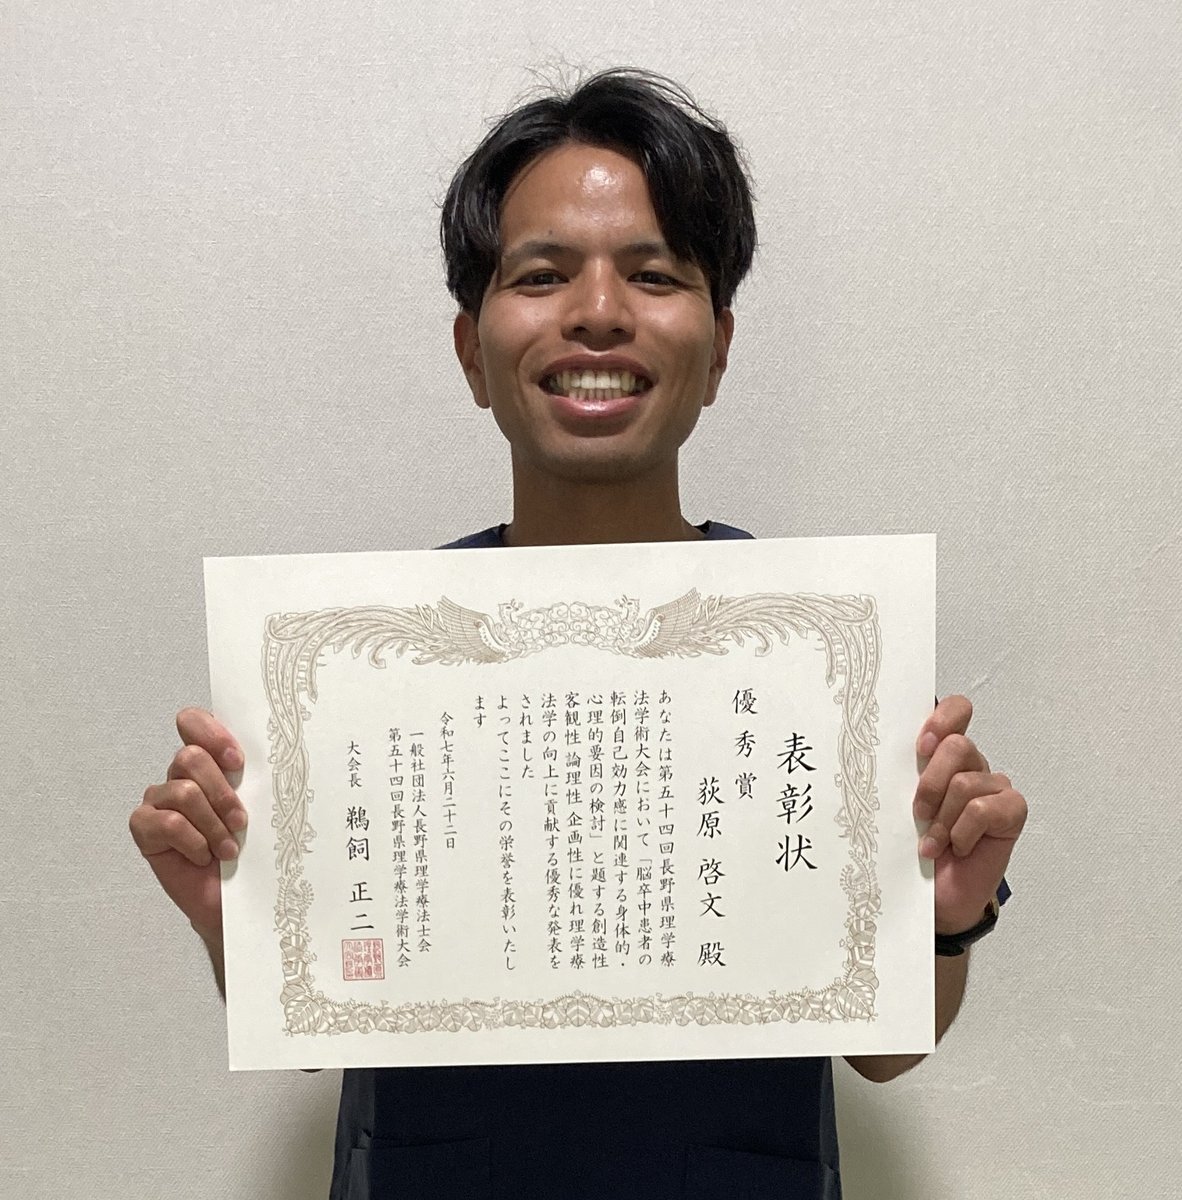 表彰状
優秀賞
荻原 啓文 殿
あなたは第五十四回長野県理学療
法学術大会において「脳卒中患者の
転倒自己効力感に関連する身体的・
心理的要因の検討」と題する創造性
客観性 論理性 企画性に優れ理学療
法学の向上に貢献する優秀な発表を
されました
よってここにその栄誉を表彰いたし
ます
令和七年六月二十二日
一般社団法人長野県理学療法士会
第五十四回長野県理学療法学術大会
大会長 鵜飼 正二